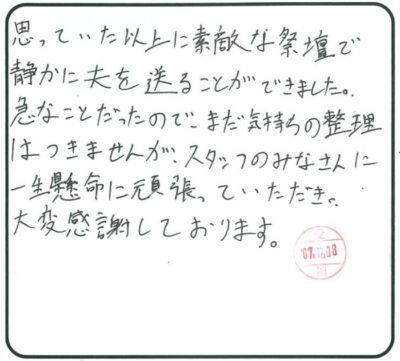 思っていた以上に素敵な祭壇で
静かに夫を送ることができました。
急なことだったので、まだ気持ちの整理
はつきませんが、スタッフのみなさんに
一生懸命に頑張っていただき、
大変感謝しております。